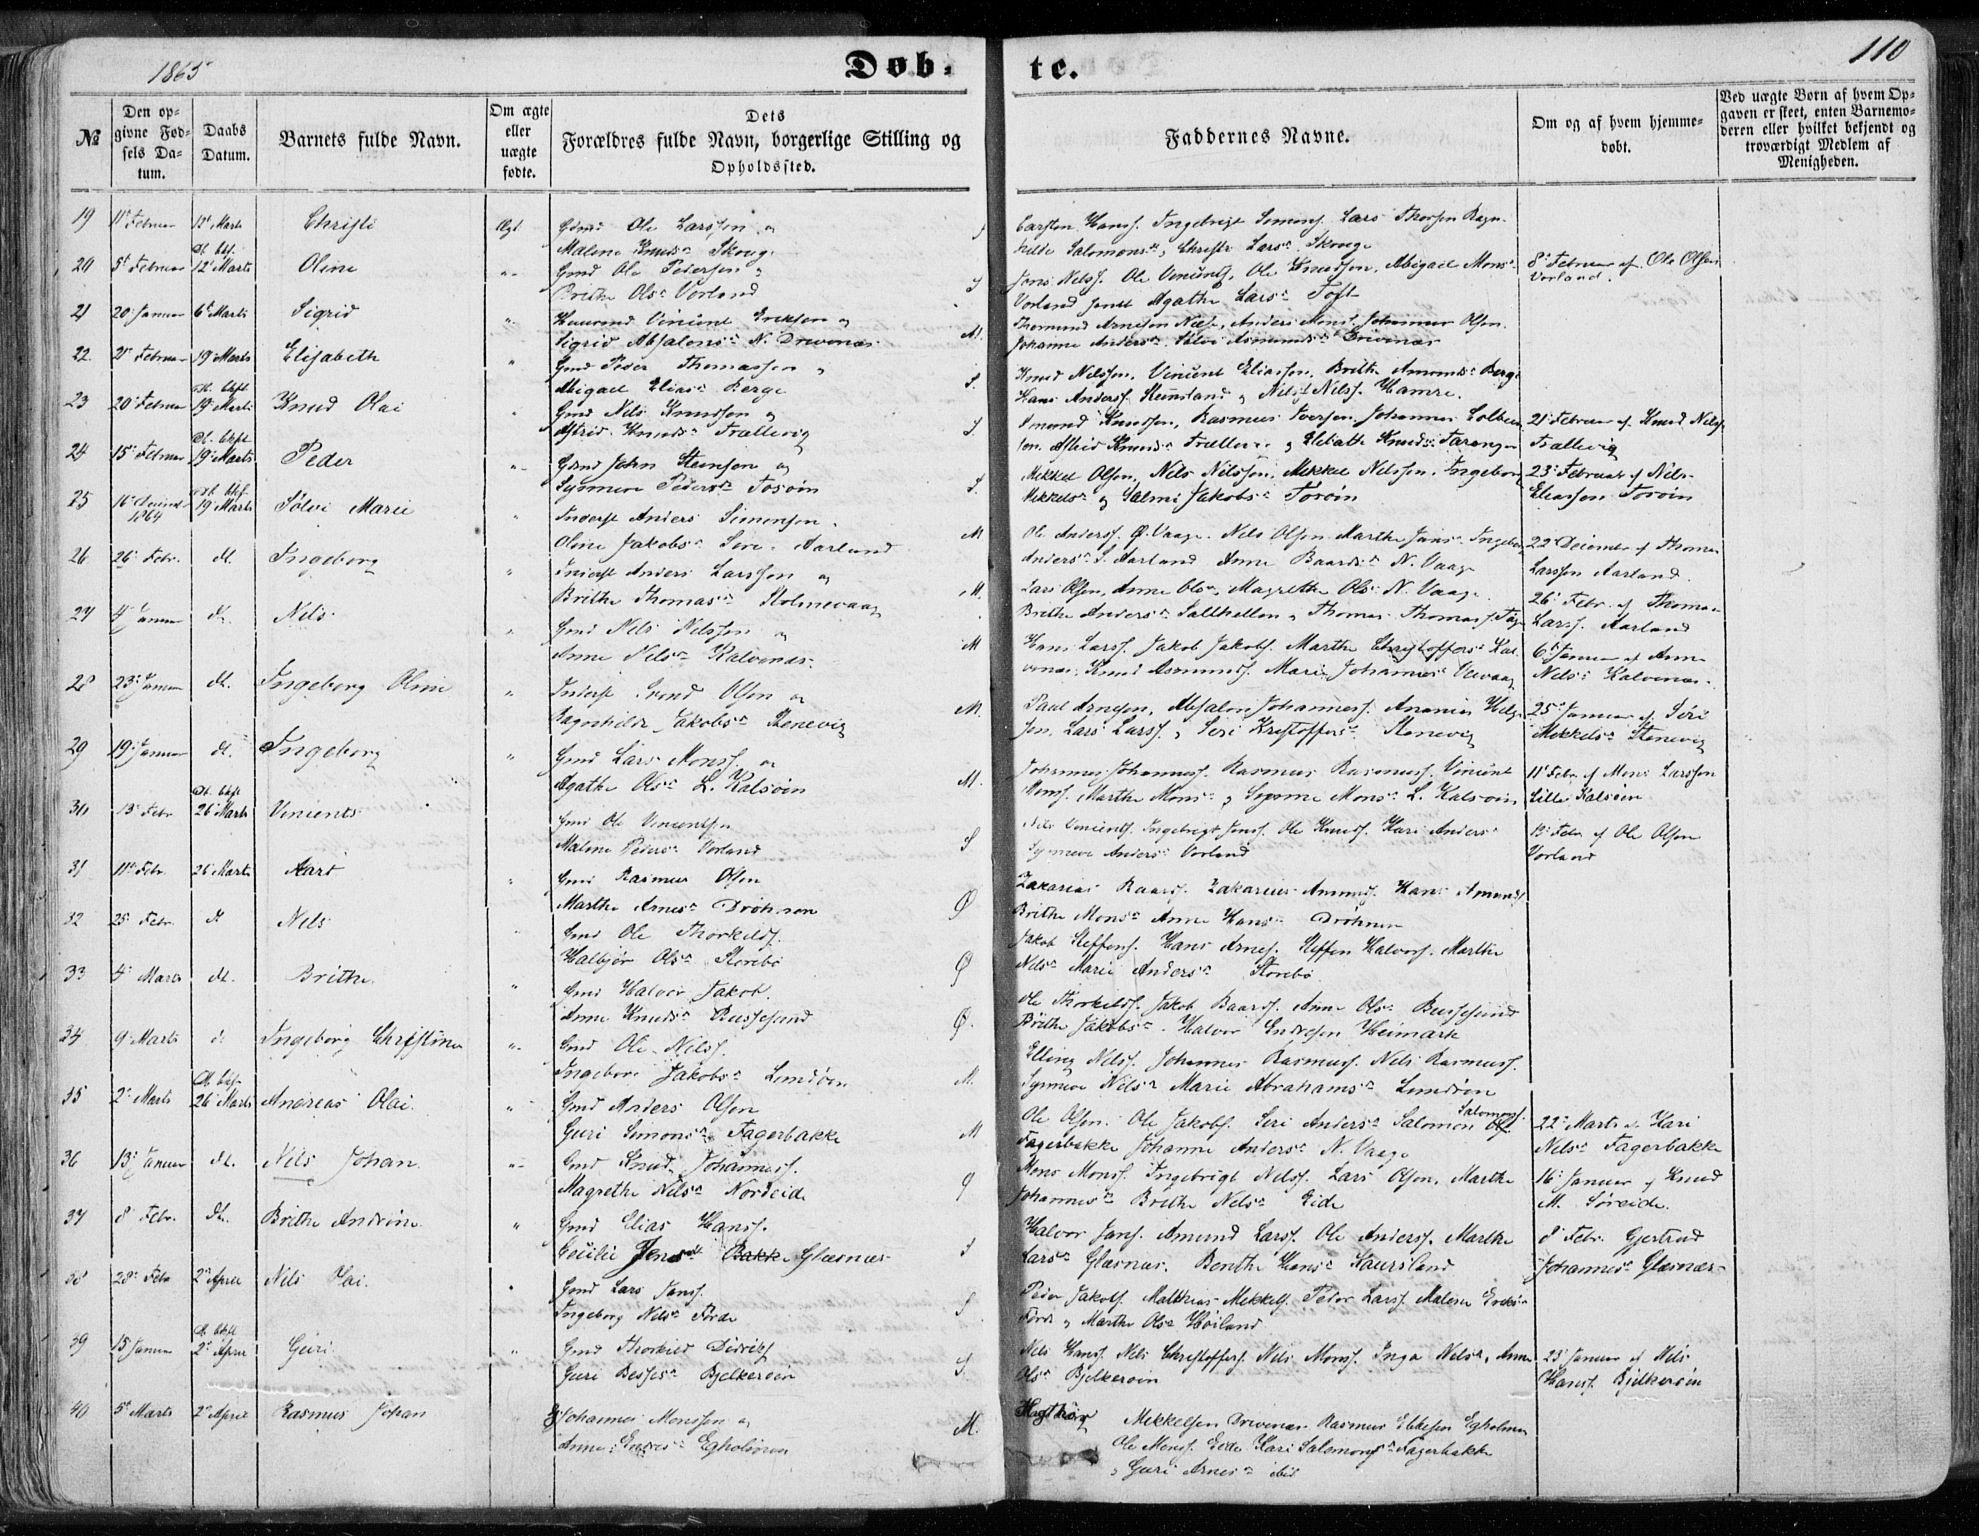 1865
Døb-
te.
110
№
Den op-
givne Fød-
sels Da-
tum.
Daabs
Datum.
Barnets fulde Navn.
Om ægte
eller
uægte
fødte.
Dets
Forældres fulde Navn, borgerlige Stilling og
Opholdssted.
Faddernes Navne.
Om og af hvem hjemme-
døbt.
Ved uægte Børn af hvem Op-
gaven er skeet, enten Barnemo-
deren eller hvilket bekjendt og
troværdigt Medlem af
Menigheden.
19 11t Februar 12t Marts Christi Ægt Gmd Ole Larssen og
Malene Knudsd Skoug. S
Carsten Hanss. Ingebrigt Simons. Lars Thorsen Ragn-
hilde Salomonsd, Christi Larsd. Skouge
20 5t Februar 12t Marts Oline Gmd Ole Pedersen
Brithe Olsd Vorland S
Jens Nelss. Ole Vincents, Ole Knudssen, Abigael Monsd
Vorland Agathe Larsd Toft
8d Februar af Ole Olsen
Vorland.
21 20 Januar 6t Marts Sigrid Vincent Eriksen og
Sigrid Absalonsd N. Drevenæs M.
Anders Mons. Johannes Olsen
Johanne Andersd Drivenæs
22 2t Februar 19 Marts Elisabeth Gmd Peder Thomassen
Abigael Eliasd Berge S.
Knud Nilssen, Vincent Eliassen, Brithe Amundsd Berge
Hans Anderss. Steinsland og Nils Nilss. Hamre.
23 20 Februar 19 Marts Knud Olai Gmd Nils Knudssen og
Astrid Knudsd Trællevig S.
Knudssen, Rasmus Iversen, Johannes
21 Februar af Knud Nils-
Trællevig
24 15 Februar 19 Marts Peder Gmd John Steensen og
Synneve Pedersd Forøin S.
Mikkel Olsen, Nils Nilssen, Mikkel Nilssen, Ingeborg
Mikkelsd og Jakobsd Forøin
23 Februar af Nils
Eliassen Forøin
25 16 1864 19 Marts Sølvi Marie Inderst Anders Simonsen
Oline Jakobsd Aarland M
Ole Anderss. Ø. Vaage. Nils Olsen Marthe Jansd Ingeborg
Andersd S. Aarland Anne Baardsd N. Vaage
22 December af Thomas
Larssen Aarland.
26 26 Febr. d. Ingeborg Inderst Anders Larssen og
Brithe Thomasd Holmevaag M.
Lars Olsen, Anne Olsd, Magrethe Olsd N. Vaage
Brithe Andersd Salthellen, Thomas Thomass.
26 Febr. af Thomas
Larss. Aarland
27 4 Januar d. Nels Gmd Nels Nelssen og
Anne Nelsd Kalvenæs. M
Hans Larss. Jakob Jakobs. Marthe Christoffersd Kal-
venæs, Knud Asmunds. Marie Johannesd
6 Januar af Anne
Nelsd Kalvenæs.
28 23 Januar d. Ingeborg Oline Inderst Olsen og
Ragnhilde Jakobsd Stenevig M.
Paul Arnesen, Absalon Johanness. Ananias Helge-
sen, Lars Larss. og Seri Kristoffersd Stenevig
25 Januar af Seri
Mekkelsd Stenevig
29 19 Januar d. Ingeborg Gmd Lars Monss. og
Agathe Olsd L. Kalsøin M.
Johannes Johanness. Rasmus Rasmuss. Vincent
Monss. Marthe Monsd og Monsd L. Kalsøin
11 Febr. af Mons Larssen
Lille Kalsøen
30 13 Febr 26 Marts Vincents Gmd Ole Vincentsen
Malene Pedersd Vorland S
Nils Vincents. Ingebrigt Jenss. Ole Knuds. Kari Andersd
Synneve Andersd Vorland
13 Febr. af Ole Olsen
Vorland
31 11 Febr. 26 Marts Gmd Rasmus Olsen
Marthe Arnesd Drøhnen Ø
Zakarias Baards. Zakarias Amunds. Hans Amunds
Brithe Monsd Anne Hansd Drøhnen
32 25 Febr. d Nils Gmd Ole Thorkilds.
Halbjør Olsd Storebø Ø
Jakob Steffens. Hans Arnes. Steffen Halvors. Marthe
Nelsd Marie Andersd Storebø
33 4 Marts d. Brithe Gmd Halvor Jakob.
Anne Knudsd Bussesund Ø.
Ole Thorkelds. Jakob Baards. Anne Olsd Bussesund
Brithe Jakobsd. Halvor Endresen Heimark
34 9 Marts d. Ingeborg Christine Gmd Ole Nilss.
Ingeborg Jakobsd M.
Elling Nelss. Johannes Rasmuss. Nils Rasmuss.
Synneve Nilsd Marie Abrahamsd
35 2 Marts 26 Marts Andreas Olai Gmd Anders Olsen
Guri Simonsd Fagerbakke M
Ole Olsen. Ole Jakobs. Seri Andersd Salomon Salomons.
Fagerbakke Johanne Andersd N. Vaage
22 Marts af Kari
Nelsd Fagerbakke
36 13 Januar d. Nils Johan Gmd Knud Johanness.
Magrethe Nilsd Nordeide Ø
Mons Monss. Ingebrigt Nelss. Lars Olsen, Marthe
Johannesd Brithe Nelsd Eide
16 Januar af Knud
M. Søreide.
37 8 Febr. d. Brithe Andrine Gmd Elias Hanss.
Cecilie Jensd Bakke Glæsnæs S
Halvor Jans. Amund Larss. Ole Anderss. Marthe
Larsd Glæsnæs. Benthe Hansd Kaursland
8 Febr. Gjertrud
Johannesd Glæsnæs
38 28 Febr 2 April Nils Olai Gmd Lars Janss.
Ingeborg Nelsd Førde S
Peder Jakobs. Matthias Mikkels. Peder Larss. Malene Eriksd
Førde og Marthe Olsd Høiland
39 15 Januar 2 April Guri Gmd Thorkild Didriks
Guri Bessesd Bjelkerøen S.
Nils Hanss. Nils Christoffers. Nils Monss. Inga Nelsd, Anne
Olsd Bjelkerøin
23 Januar af Nils
Hanss. Bjelkerøin
40 5t Marts 2 April Rasmus Johan Johannes Monssen og
Anne Endresd Egholmen M.
Mekkelsen Drivenæs Rasmus Egholmen
Ole Monss. Eide Kari Salomonsd Fagerbakke
og Guri Arnesd ibid